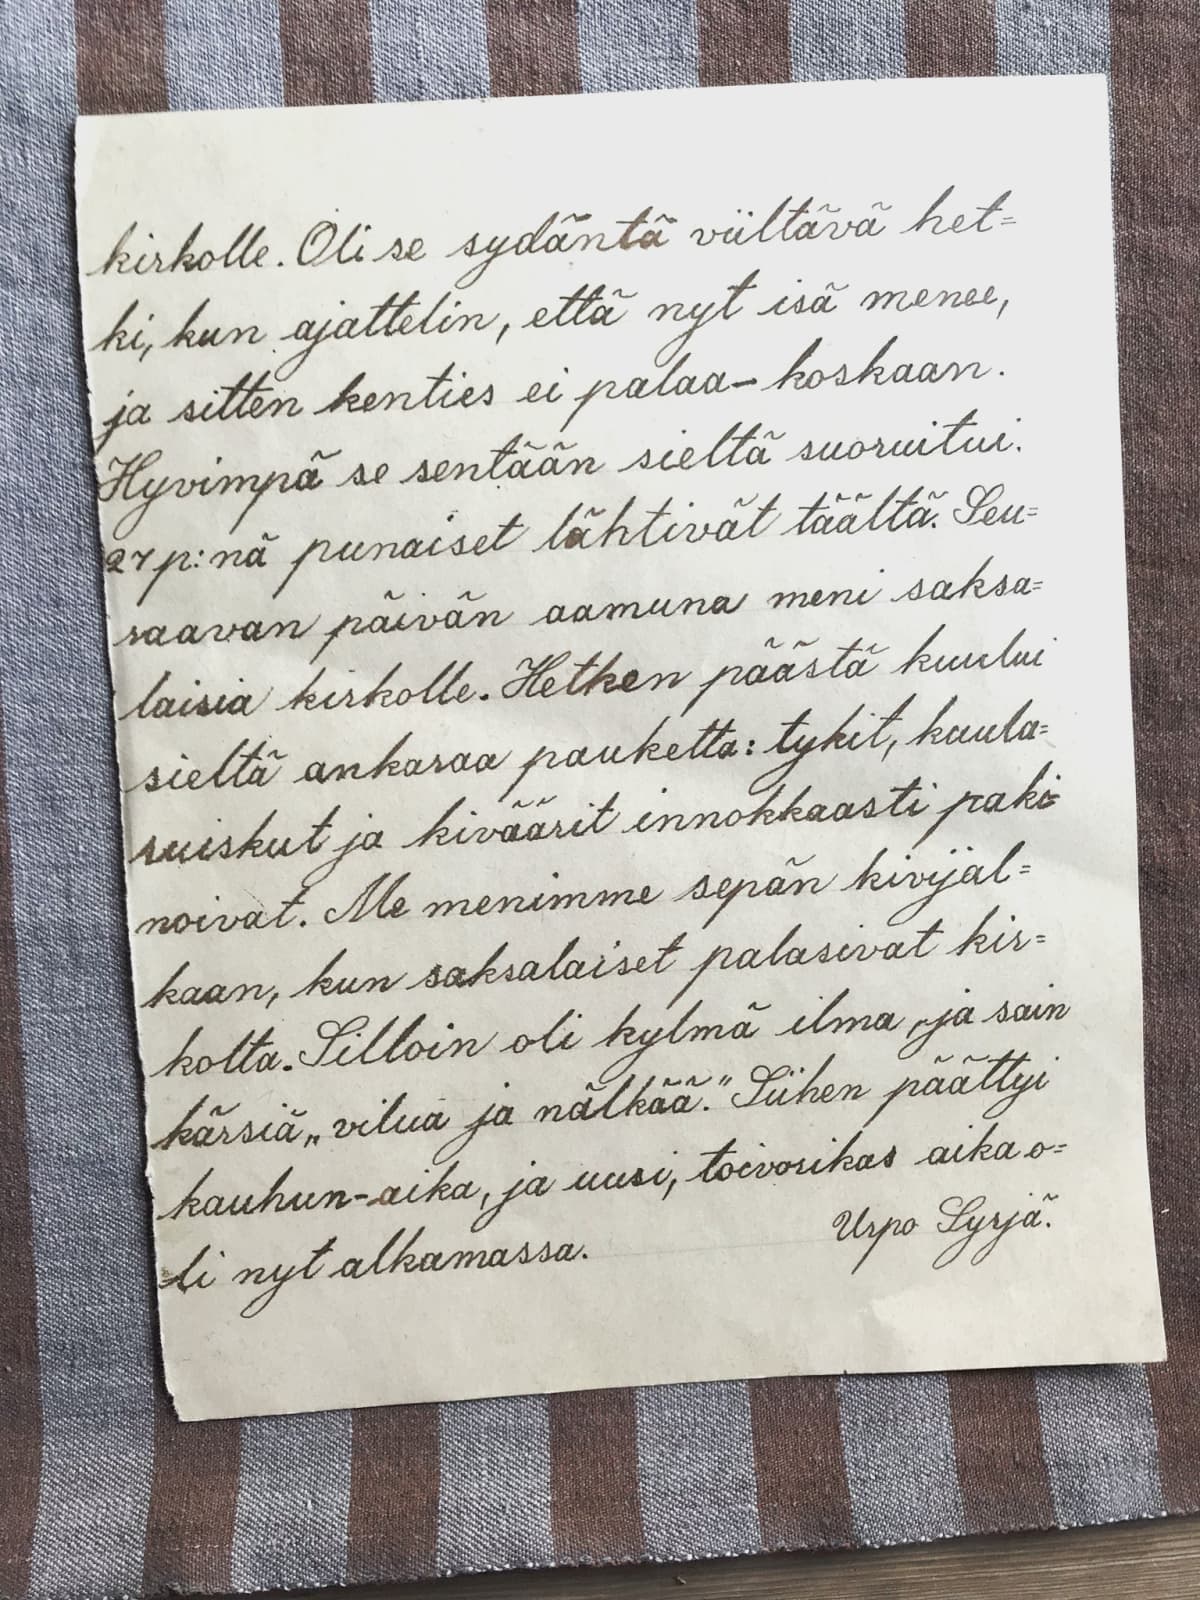 kirkolle. Oli se sydäntä viiltävä het=
ki, kun ajattelin, että nyt isä menee,
ja sitten kenties ei palaa– koskaan.
Hyvimpä se sentään sieltä suoruitui.
27 p:nä punaiset lähtivät täältä. Seu=
raavan päivän aamuna meni saksa=
laisia kirkolle. Hetken päästä kuului
sieltä ankaraa pauketta: tykit, kuula=
ruiskut ja kiväärit innokkaasti paki=
noivat. Me menimme sepän kivijal=
kaan, kun saksalaiset palasivat kir=
kolta. Silloin oli kylmä ilma, ja sain
kärsiä „vilua ja nälkää.” Siihen päättyi
kauhun-aika, ja uusi, toivorikas aika o=
li nyt alkamassa.
Urpo Syrjä.